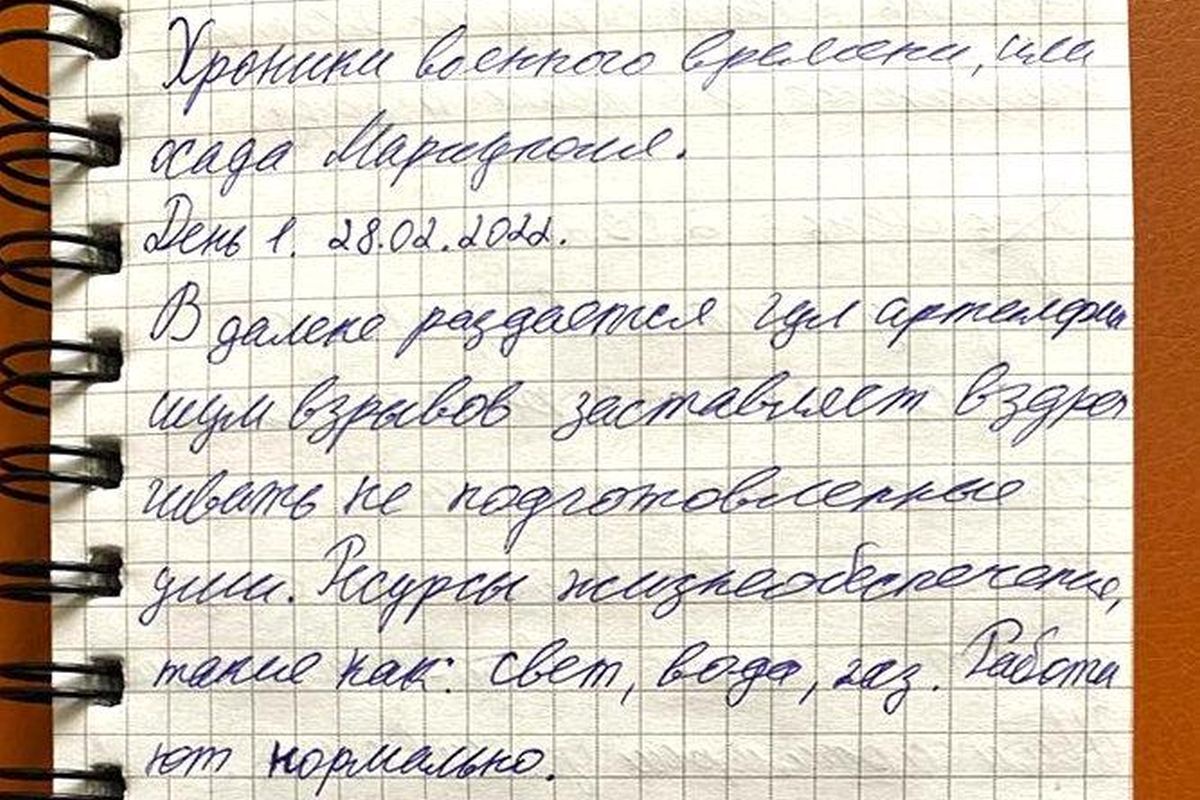 Хроники военного времени, или
осада Мариуполя.
День 1. 28.02.2022.
В далеке раздается гул артилерии
шум взрывов заставляет вздра
гивать не подготовленные
уши. Ресурсы жизнеобеспечения,
такие как: свет, вода, газ. Работа
ют нормально.